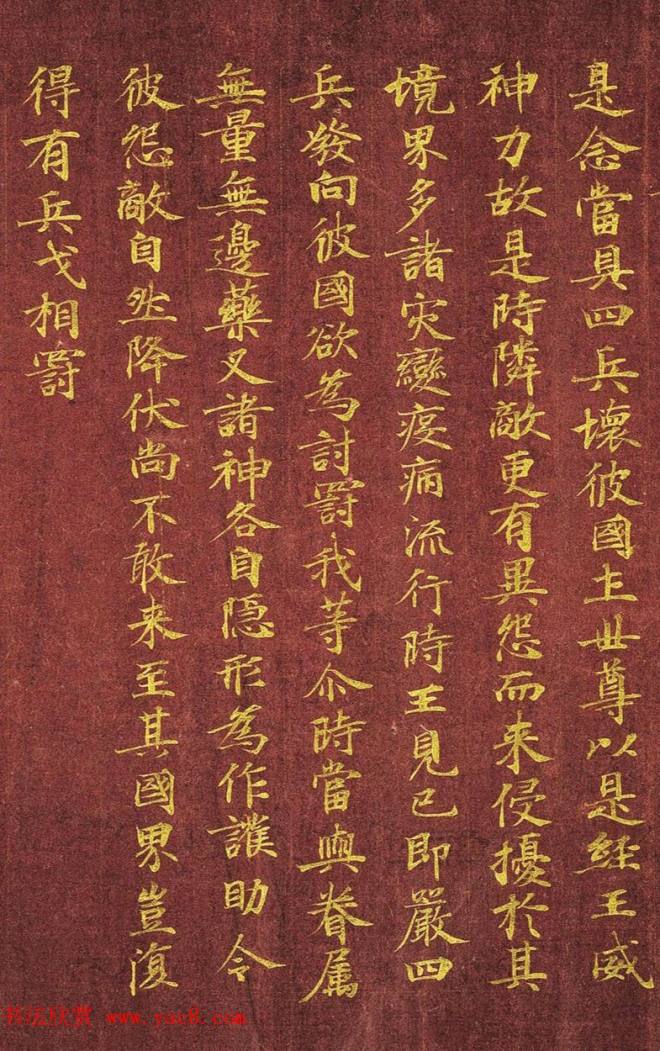 是念當具四兵壞彼國土世尊以是經王威
神力故是時隣敵更有異怨而来侵擾於其
境界多諸灾變疫病流行時王見已即嚴四
兵發向彼國欲為討罸我等尒時當與眷属
無量無邊藥叉諸神各自隱形為作護助令
彼怨敵自然降伏尚不敢来至其國界豈復
得有兵戈相罸
书法欣赏 www.yac8.com